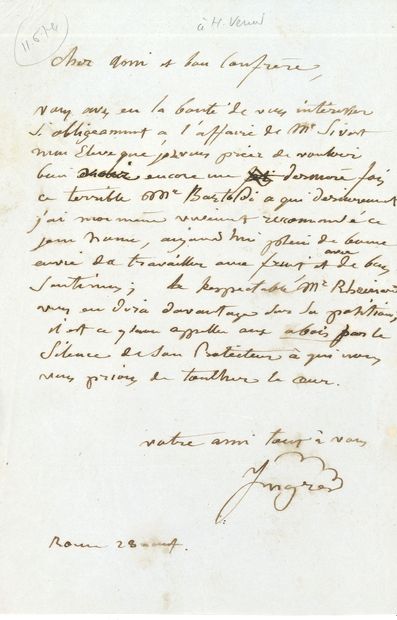 11.5.74
à H. Vernet
Cher ami et bon Confrère,
vous avez eu la bonté de vous intéresser
si obligeamment a l'affaire de Mr
mon Eleve que je vous prier de vouloir
bien encore une dernière fois
ce terrible Mr Bartoldi a qui
j'ai moi même vivement recommandé ce
jeune homme, aujourd'hui plein de bonne
envie de travailler avec fruit et de bons
Sentimens; Le respectable Mr
vous en dira davantage sur sa position,
il est ce qu'on appelle aux abois par le
Silence de son Protecteur à qui nous
vous prions de toucher le cœur.
votre ami tout à vous
Ingres
Rome 28